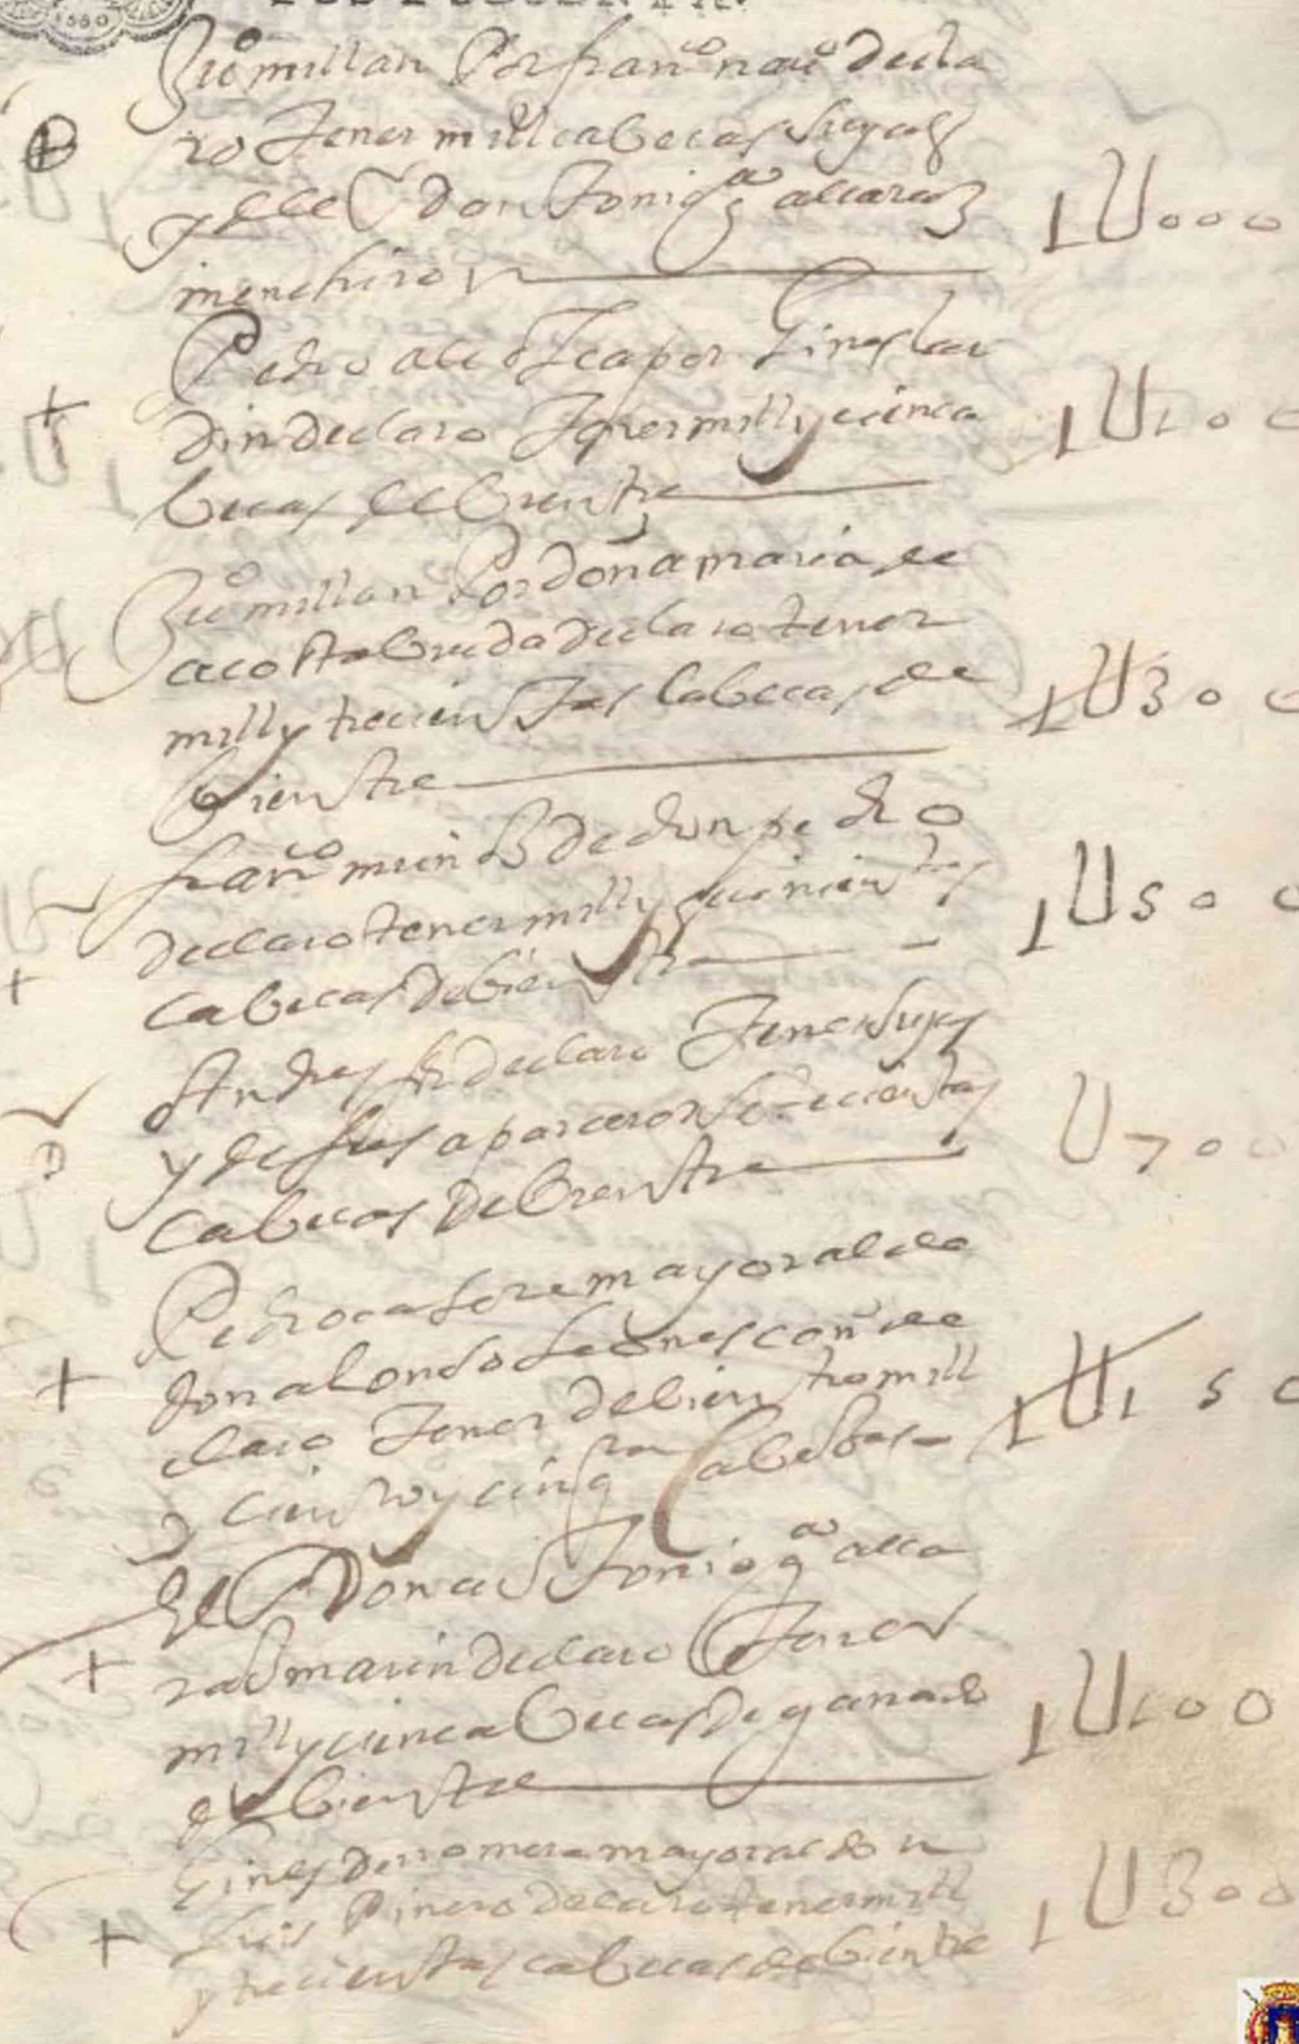 Juº millan Por franco nauº decla
ro Tener mill cabecas suyas
y de el Sr don Antonio gª alcaraz 1U000
menchiron
Pedro alcoTea por Gines lar
din declaro Tener mill y cien ca 1U100
becas de bientre
Juº millan Por doña maria de
acosta biuda declaro tener
mill y trecientas Cabecas de 1U300
bientre
franco muñoz de don pedro
declaro tener mill y quinientas 1U500
cabecas de bientre
Andres declaro Tener suyas
y de sus aparceros setecientas U700
cabecas de bientre
Pedro mayoral de
don alonso Leones con de
claro Tener de bientre mill 1U150
y ciento y cinqta Cabesas
El Sr Don antonio gª alca
raz marin declaro Tener
mill y cien cabecas de ganado 1U100
de bientre
Gines de romera mayoral de don
Luis Pinero declaro tener mill 1U300
y trecientas cabecas de bientre